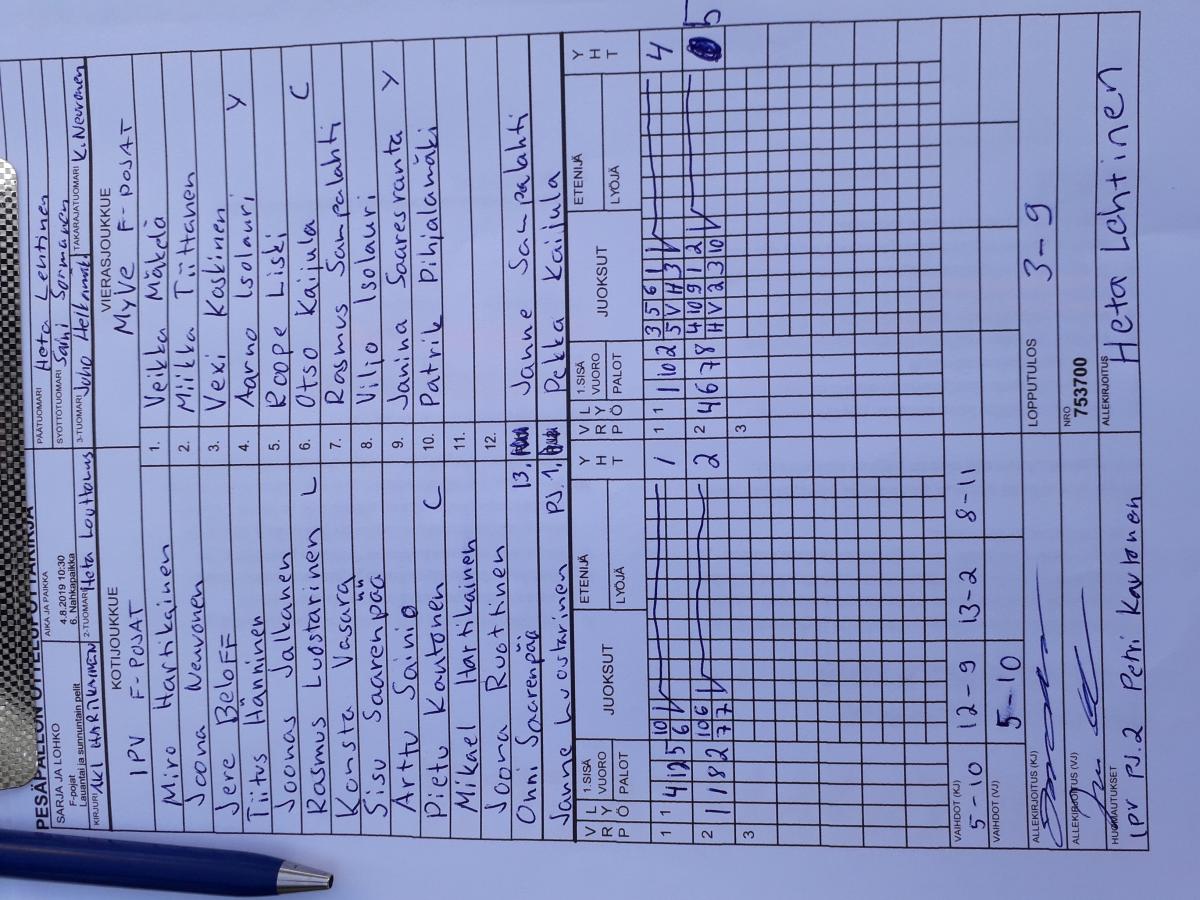 PESÄPALLON OTTELUPÖYTÄKIRJA
SARJA JA LOHKO
F-pojat
Lauantai ja sunnuntain pelit
AIKA JA PAIKKA
4.8.2019 10:30
6. Nahkapaikka
PÄÄTUOMARI Heta Lehtinen
SYÖTTÖTUOMARI Sormanen
KIRJURI HARTIKAINEN 2-TUOMARI Heta 3-TUOMARI Juho TAKARAJATUOMARI K. Neuvonen
KOTIJOUKKUE VIERASJOUKKUE
IPV F-POJAT MyVe F-POJAT
Miro Hartikainen 1. Veikka Mäkelä
Joona Neuvonen 2. Miikka Tiittanen
Jere Beloff 3. Vexi Kaskinen
Tiitus Hänninen 4. Aarno Isolauri Y
Joonas Jalkanen 5. Roope Liski
Rasmus Luostarinen L 6. Otso Kaijula C
Konsta Vasara 7. Rasmus Sampalahti
Sisu Saarenpää 8. Viljo Isolauri
Arttu Sainio 9. Janina Saaresranta Y
Pietu Kautonen C 10. Patrik Pihjalamäki
Mikael Hartikainen 11.
Joona Ruotinen 12.
Onni Saarenpää 13. Janne Sampalahti
Janne Luostarinen PJ. 1. Pekka Kaijula
VRP LYÖ 1.SISÄ VUORO PALOT JUOKSUT ETENIJÄ LYÖJÄ YHT VRP LYÖ 1.SISÄ VUORO PALOT JUOKSUT ETENIJÄ LYÖJÄ YHT
1 1 4 12 5 10 1 1 1 1 10 2 3 5 6 1 4
6 5 V H 3
2 1 1 8 2 10 6 2 2 4 6 7 8 4 10 9 1 2 5
7 7 H V 2 3 10
3 3
VAIHDOT (KJ)
5-10 12-9 13-2 8-11
VAIHDOT (VJ)
5-10
ALLEKIRJOITUS (KJ) LOPPUTULOS
3-9
ALLEKIRJOITUS (VJ) NRO
753700
HUOMAUTUKSET ALLEKIRJOITUS
IPV PJ.2 Petri Kautonen Heta Lehtinen